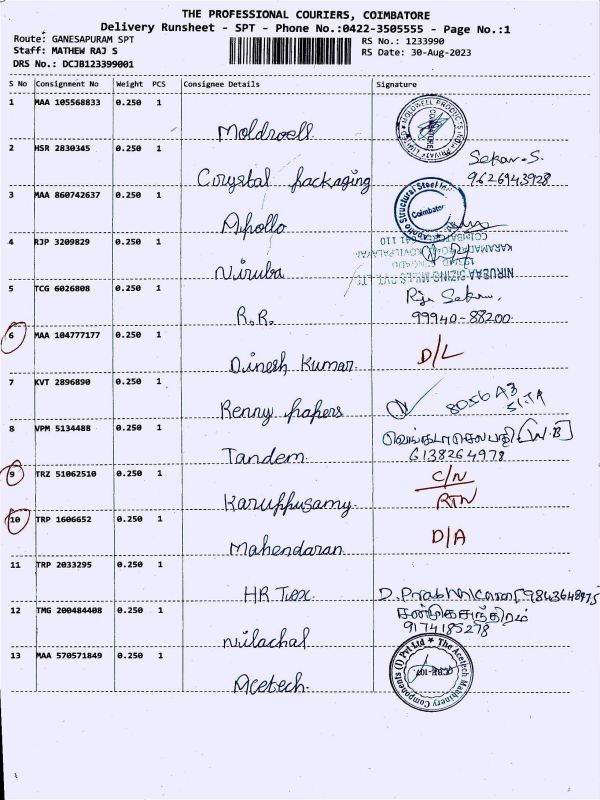 THE PROFESSIONAL COURIERS, COIMBATORE
Delivery Runsheet - SPT - Phone No.:0422-3505555 - Page No.:1
Route: GANESAPURAM SPT
Staff: MATHEW RAJ S
DRS No.: DCJB123399001
RS No.: 1233990
RS Date: 30-Aug-2023
S No Consignment No Weight PCS Consignee Details Signature
1 MAA 105568833 0.250 1
Moldwell
MOLDWELL PRODUCTS PRIVATE LIMITED
2 HSR 2830345 0.250 1
Sekar.S.
Corystal packaging 9626943928
3 MAA 860742637 0.250 1
Apollo
Structural Steel
Coimbatore
4 RJP 3209829 0.250 1
Niruba
NIRUBAA SIZING MILLS PVT LTD
5 TCG 6026808 0.250 1
R.R. 99940-88200
6 MAA 104777177 0.250 1
D/L
Dinesh Kumar
7 KVT 2896890 0.250 1
Renny papers
8 VPM 5134488 0.250 1
வெங்கடாசலபதி (W.B)
Tandem 6138264978
9 TRZ 51062510 0.250 1
C/N
RTN
Karuppusamy
10 TRP 1606652 0.250 1
D/A
Mahendaran
11 TRP 2033295 0.250 1
HR Tex
12 TMG 200484408 0.250 1
9174185278
Nilachal
13 MAA 570571849 0.250 1
Acetech
The Acetech Machinery Components (I) Pvt Ltd